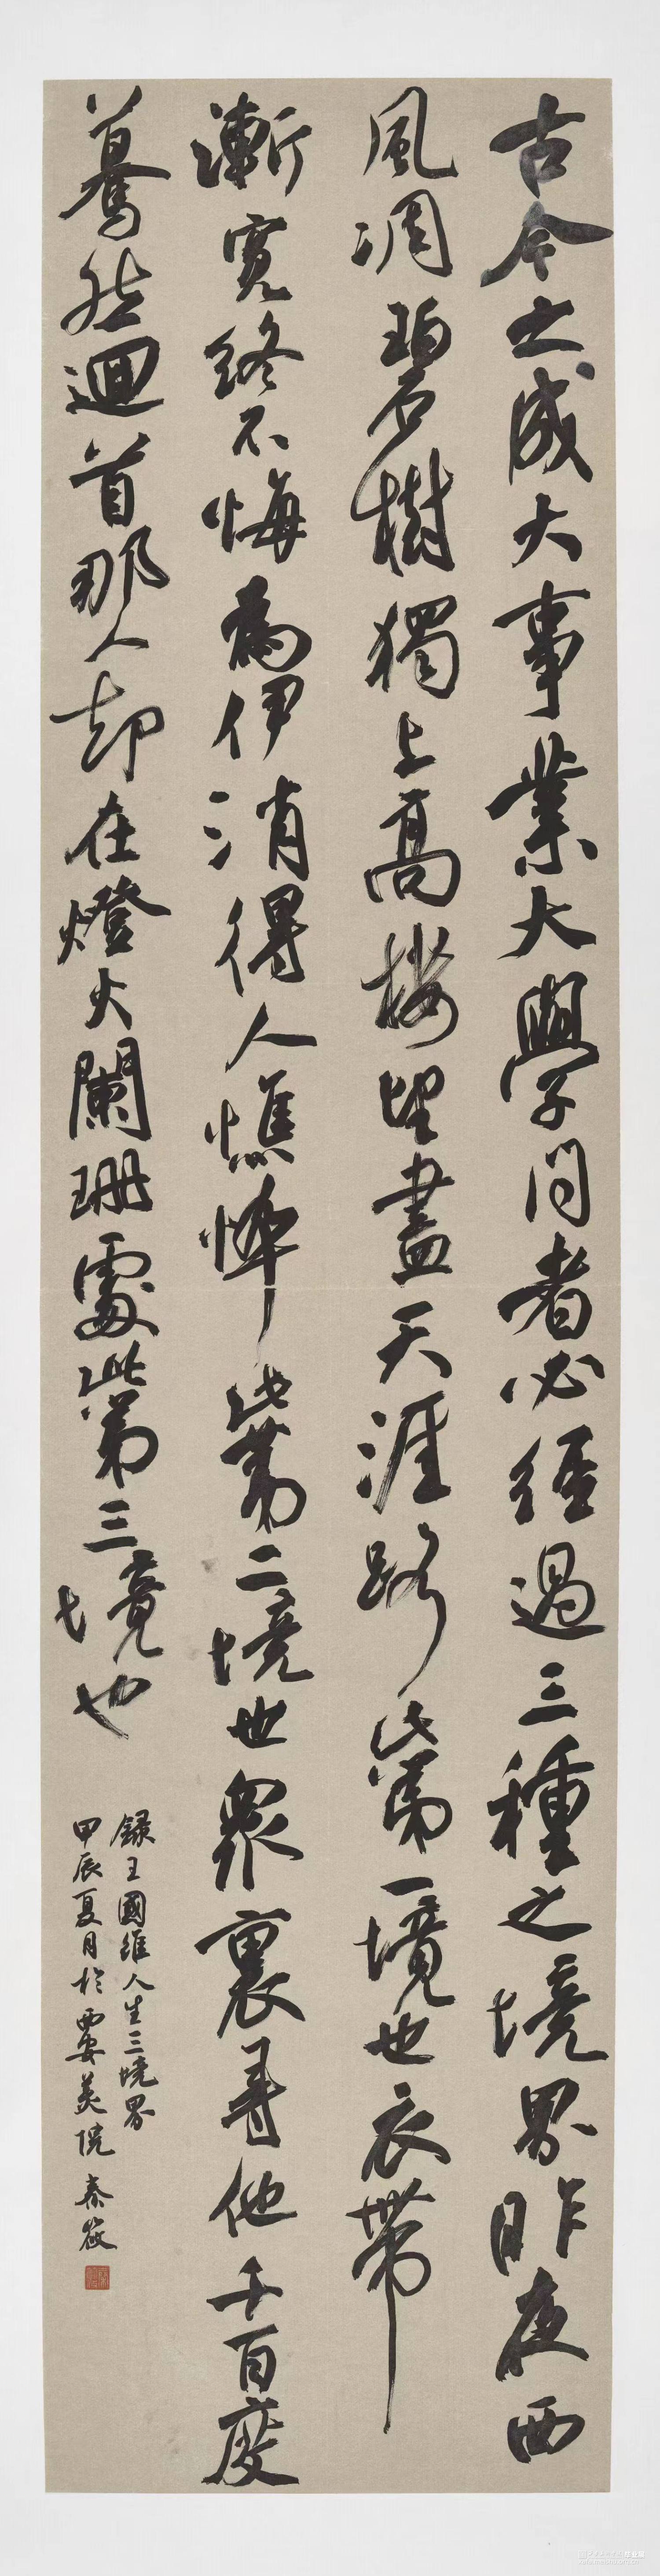 古今之成大事業大學問者必經過三種之境界昨夜西
風凋碧樹獨上高樓望盡天涯路此第一境也衣帶
漸寬終不悔為伊消得人憔悴此第二境也眾裏尋他千百度
驀然迴首那人却在燈火闌珊處此第三境也
錄王國維人生三境界
甲辰夏月於西安美院 秦筱